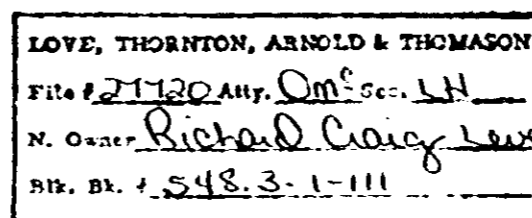 LOVE, THORNTON, ARNOLD & THOMASON
File # 27720 Atty. Omc Sec. LH
N. Owner Richard Craig
Blk. Bk. # 548.3-1-111